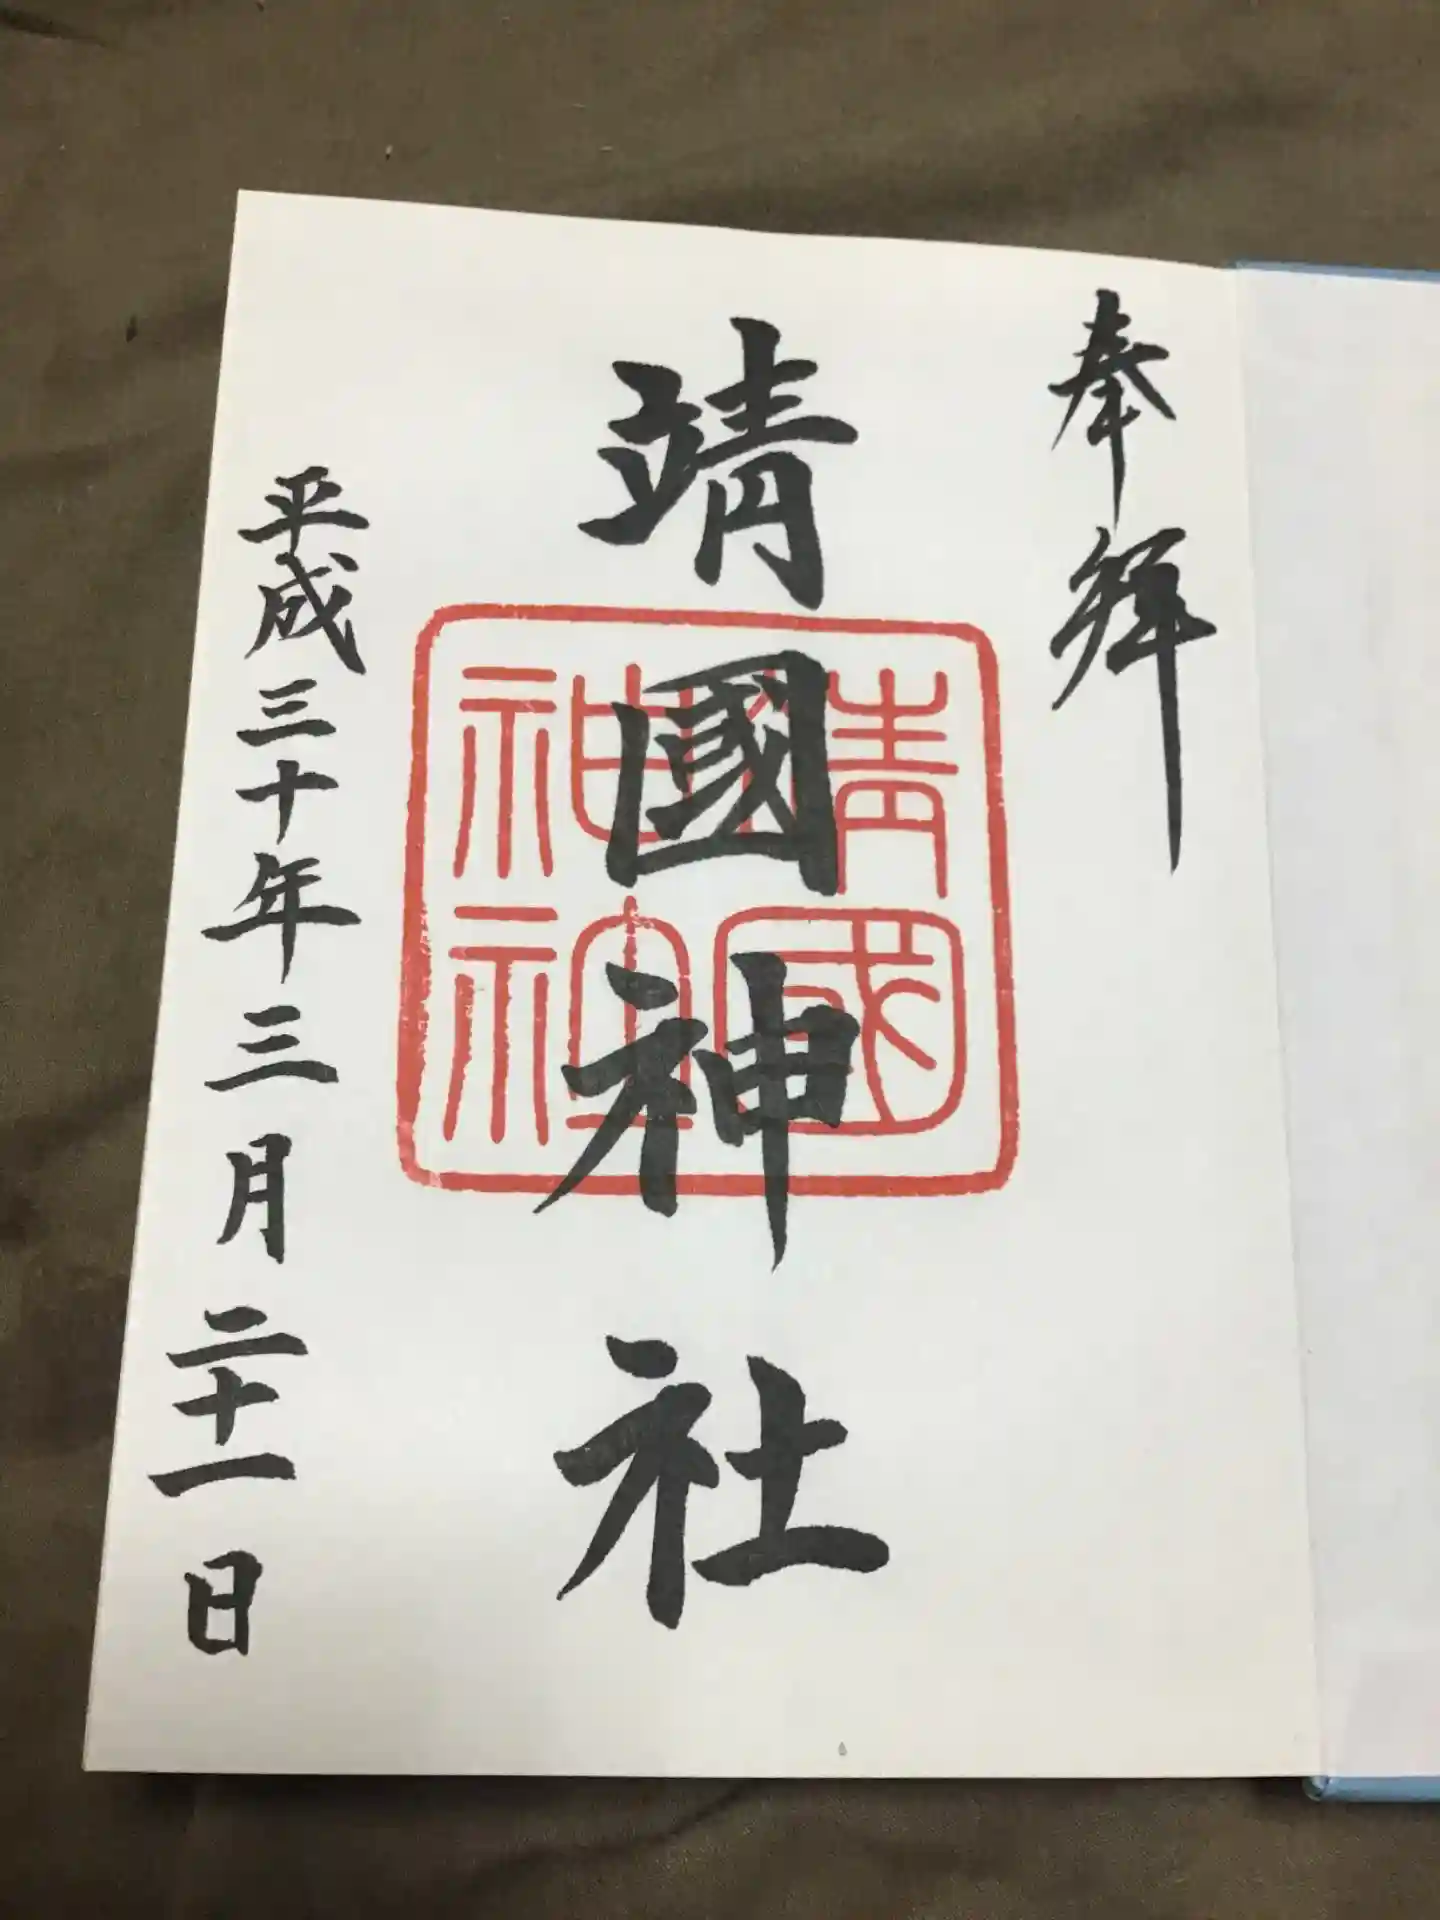 奉拜
靖國神社
靖國神社
平成三十年三月二十一日